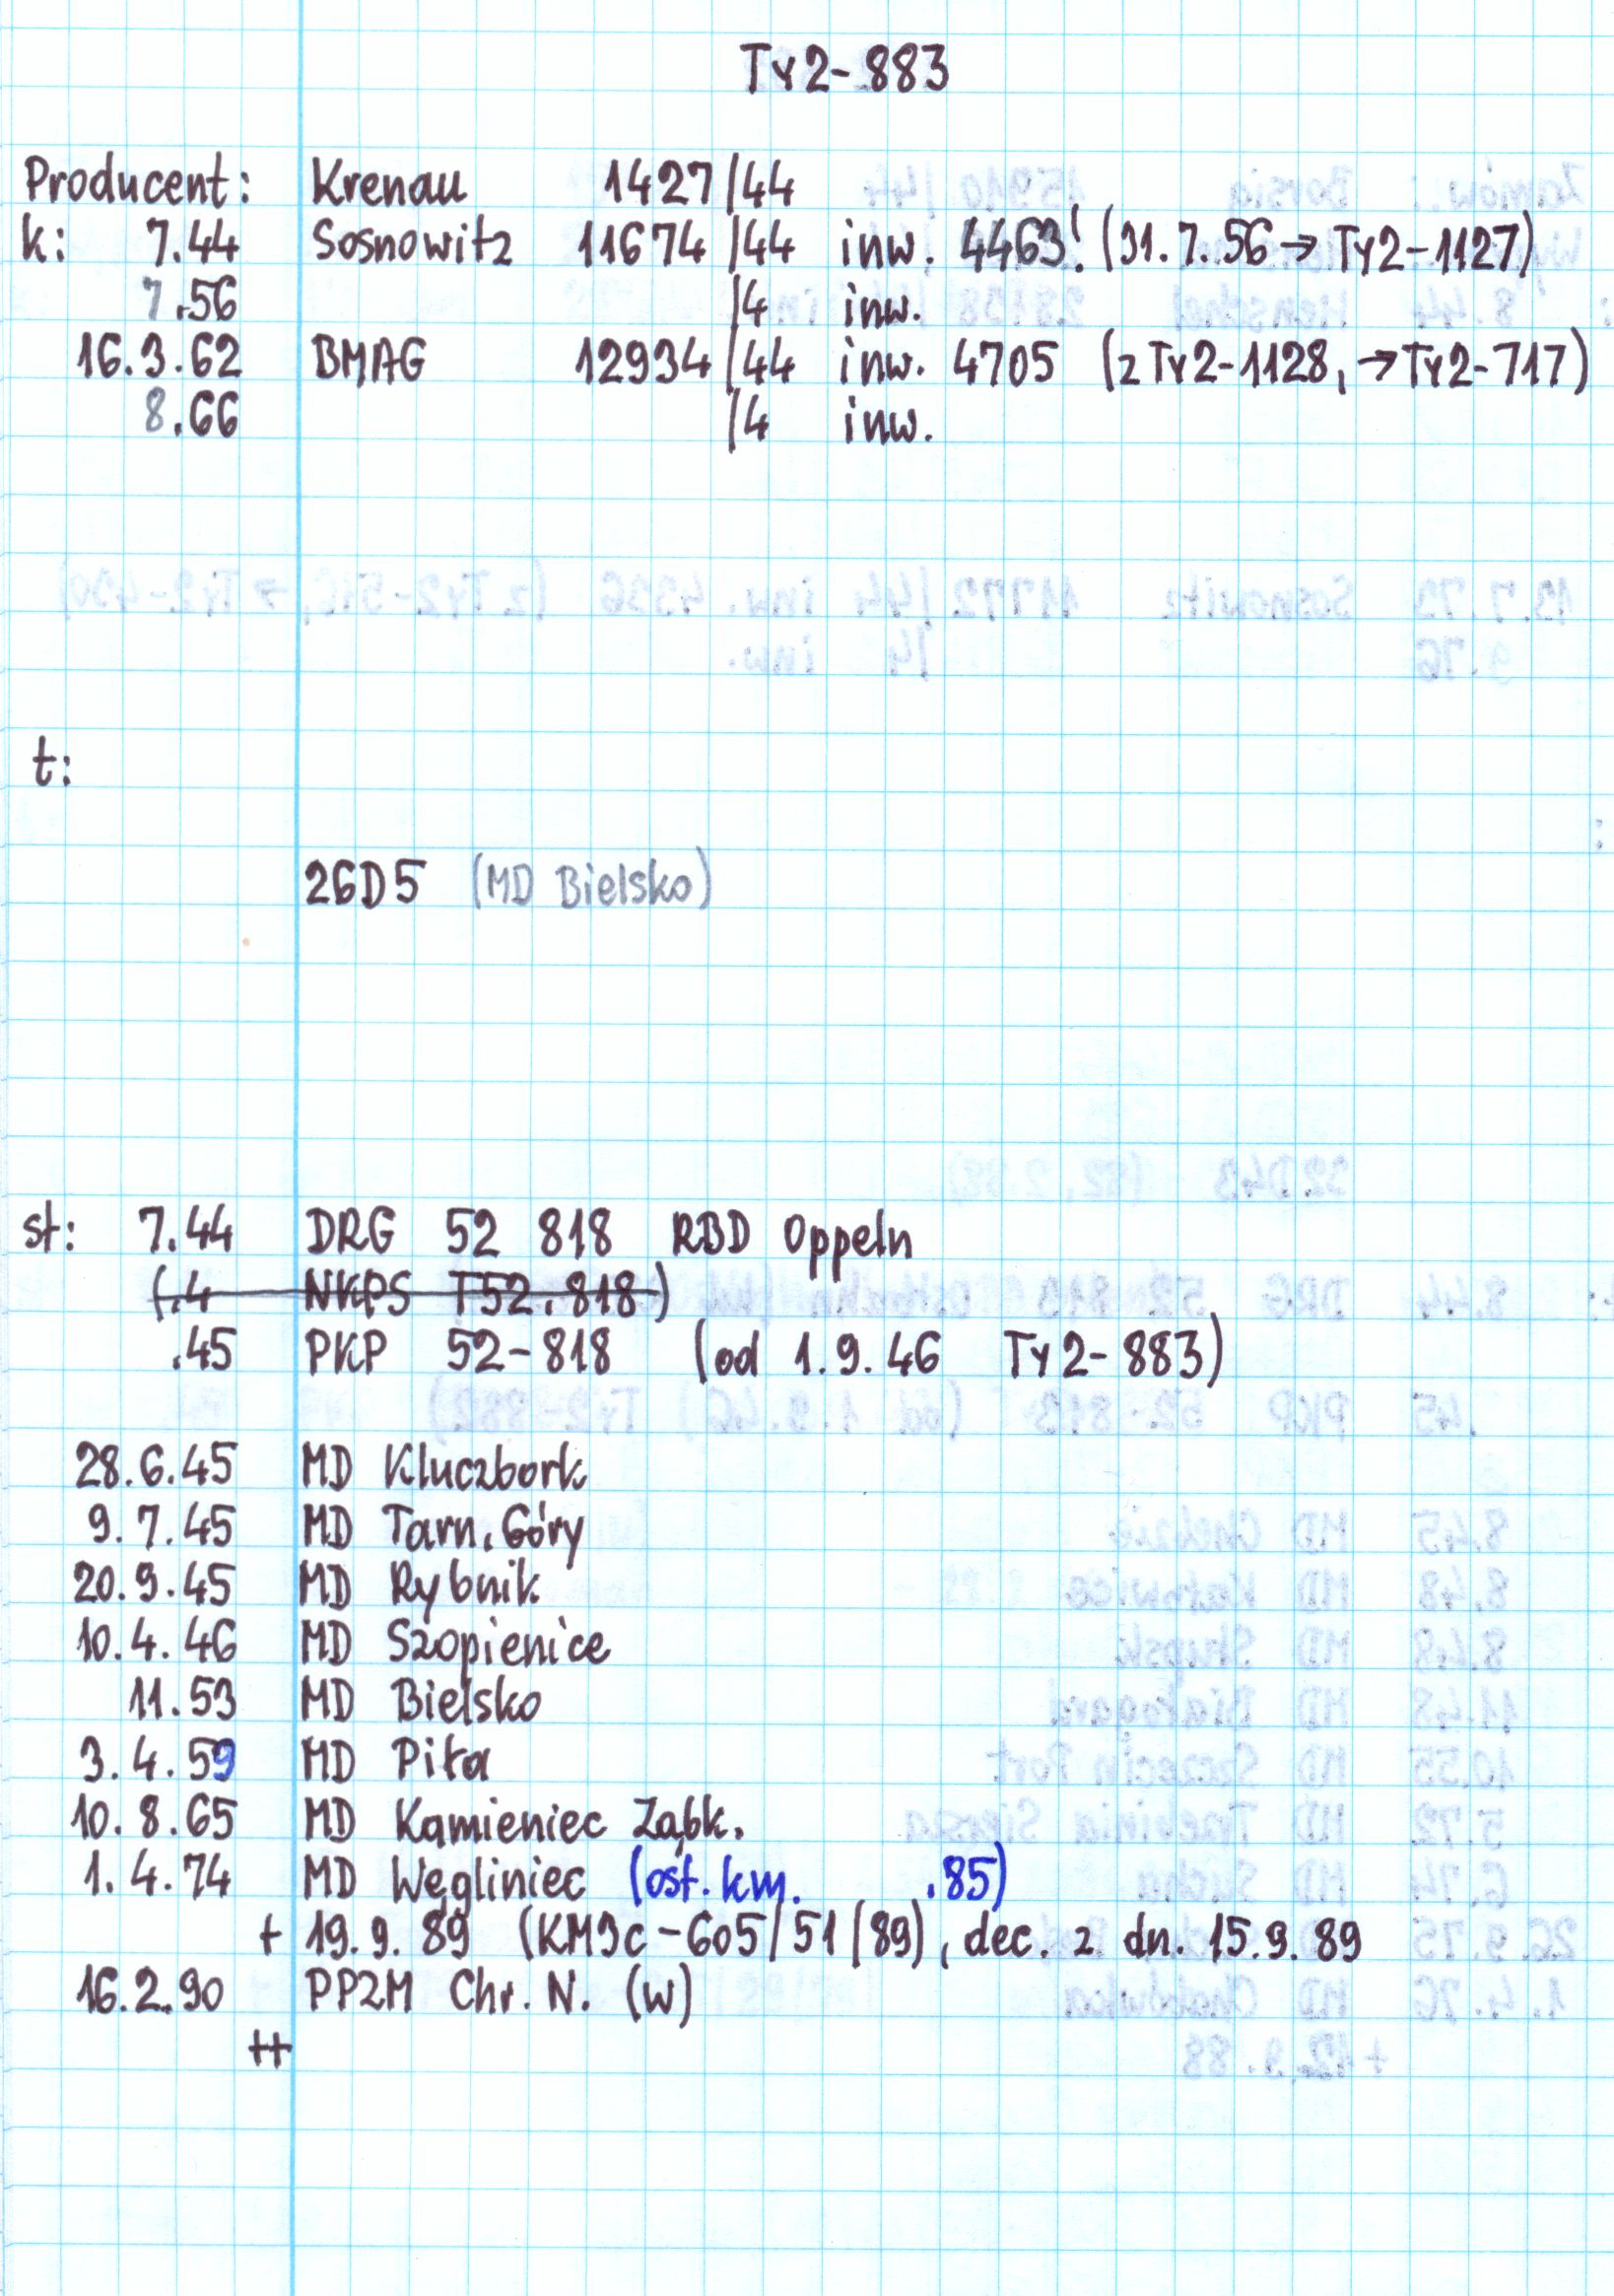 Ty2-883
Producent: Krenau 1427/44
k: 7.44 Sosnowitz 11674/44 inw. 4463! (31.7.56 → Ty2-1127)
7.56 /4 inw.
16.3.62 BMAG 12934/44 inw. 4705 (z Ty2-1128, → Ty2-717)
8.66 /4 inw.
t:
26D5 (MD Bielsko)
st: 7.44 DRG 52 818 RBD Oppeln
(.4 NKPS T52.818)
.45 PKP 52-818 (od 1.9.46 Ty2-883)
28.6.45 MD Kluczbork
9.7.45 MD Tarn. Góry
20.9.45 MD Rybnik
10.4.46 MD Szopienice
11.53 MD Bielsko
3.4.59 MD Piła
10.8.65 MD Kamieniec Ząbk.
1.4.74 MD Węgliniec (ost. km. .85)
+ 19.9.89 (KM9c-605/51/89), dec. z dn. 15.9.89
16.2.90 PPZM Chr. N. (w)
++